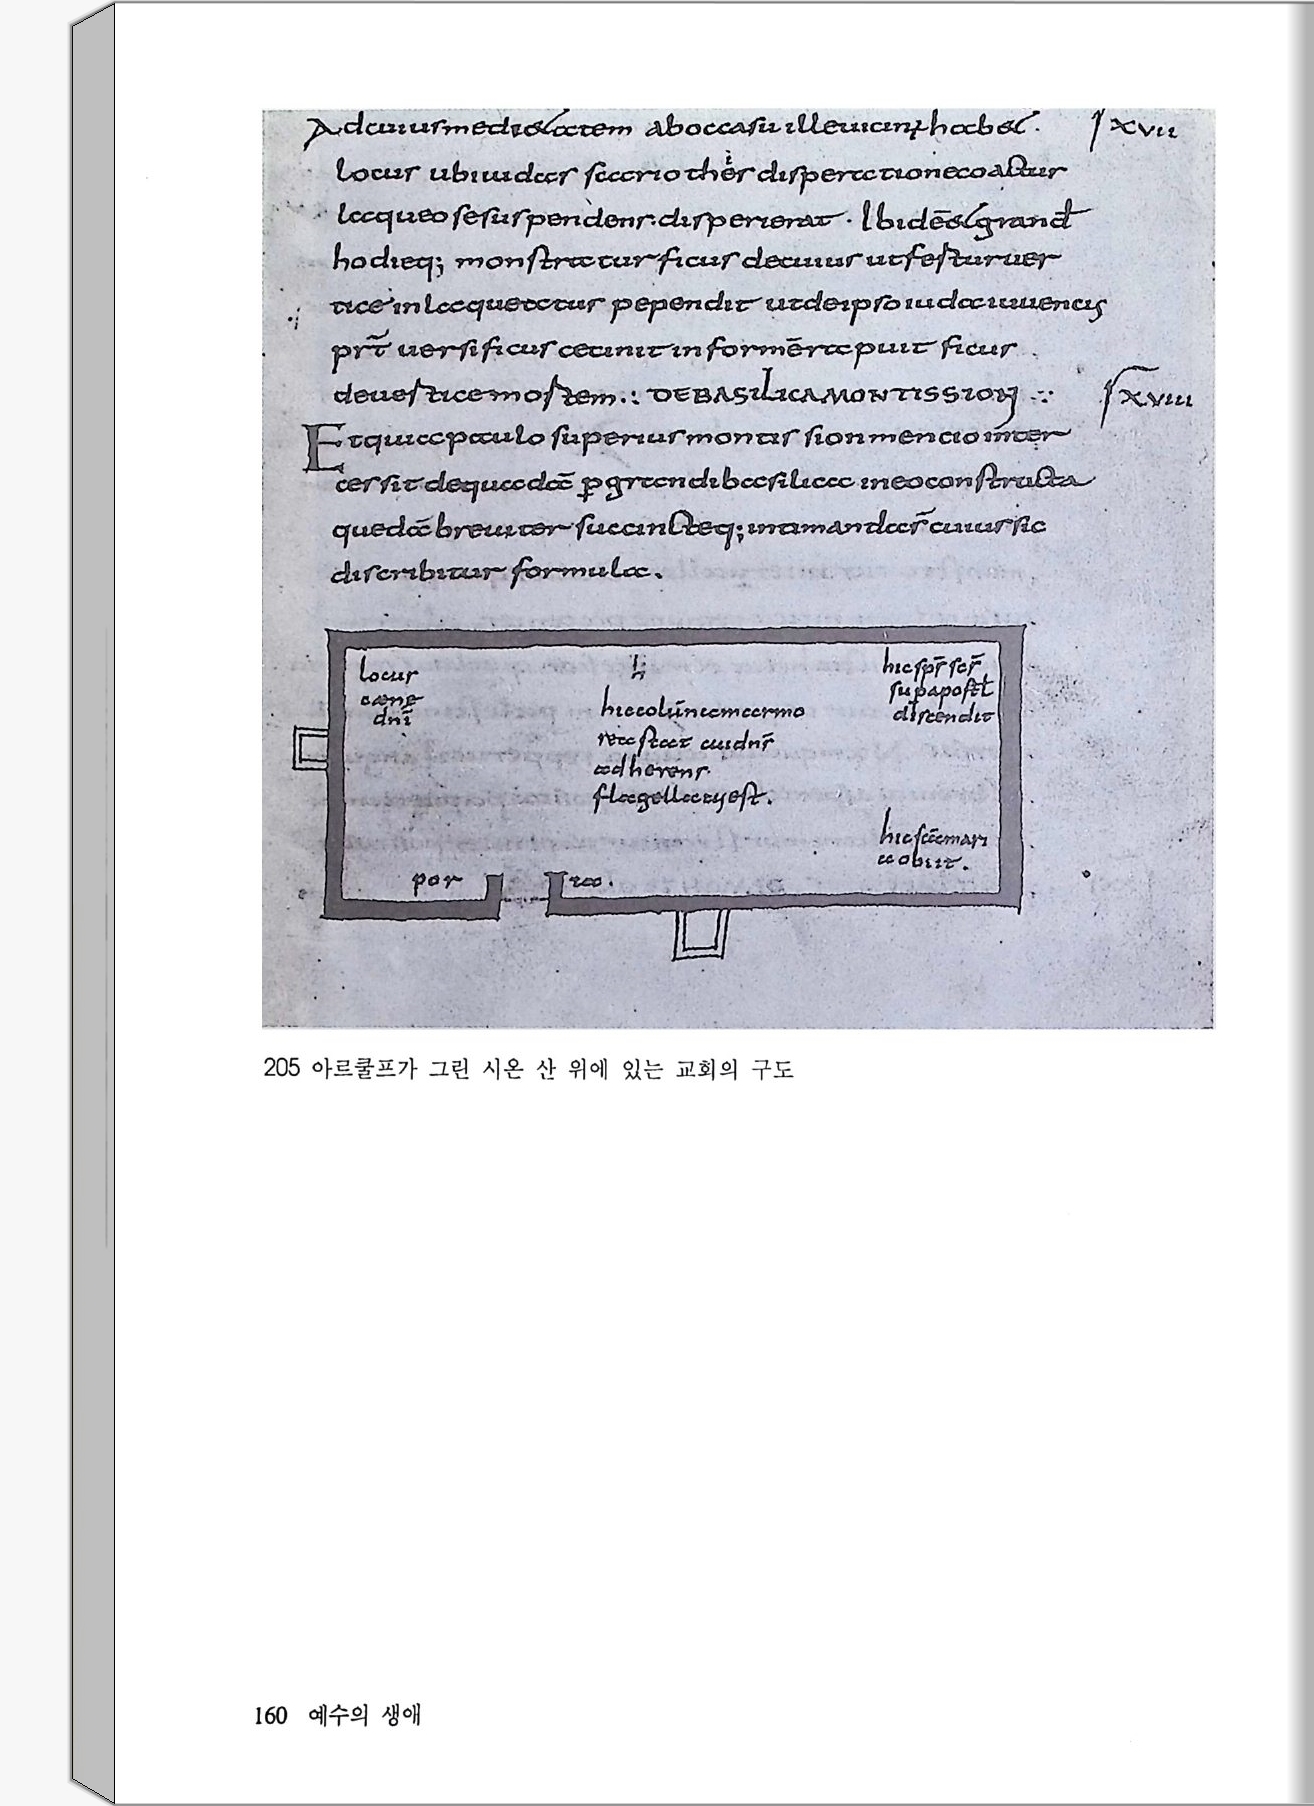 Adcuiusmediaetatem aboccasu illeuicinus habet. xvii
locus ubi iudas scariothis disperationecoactus
laqueo sesuspendens disperierat. Ibidē et grand
hodieq; monstratur ficus decuius utfestur uer
tice inlaqueatus pependit utdeipso iuda iuuencus
prt uersificus cecinit informē rapuit ficus
deuertice mortem. DEBASILICAMONTISSION xviii
Et quia paulo superius montis sion mencio inter
cersit dequadā pgrandi basilica ineo constructa
quedā breuiter succincteq; intimanda st cuius sic
discribitur formula.
locus
caene
dni
hic colūna marmo
rea stat cui dns
adherens
flagellatus est.
hic sps scs
sup apostl
discendit
hic scā mari
a obiit.
por ta.
205 아르쿨프가 그린 시온 산 위에 있는 교회의 구도
160 예수의 생애